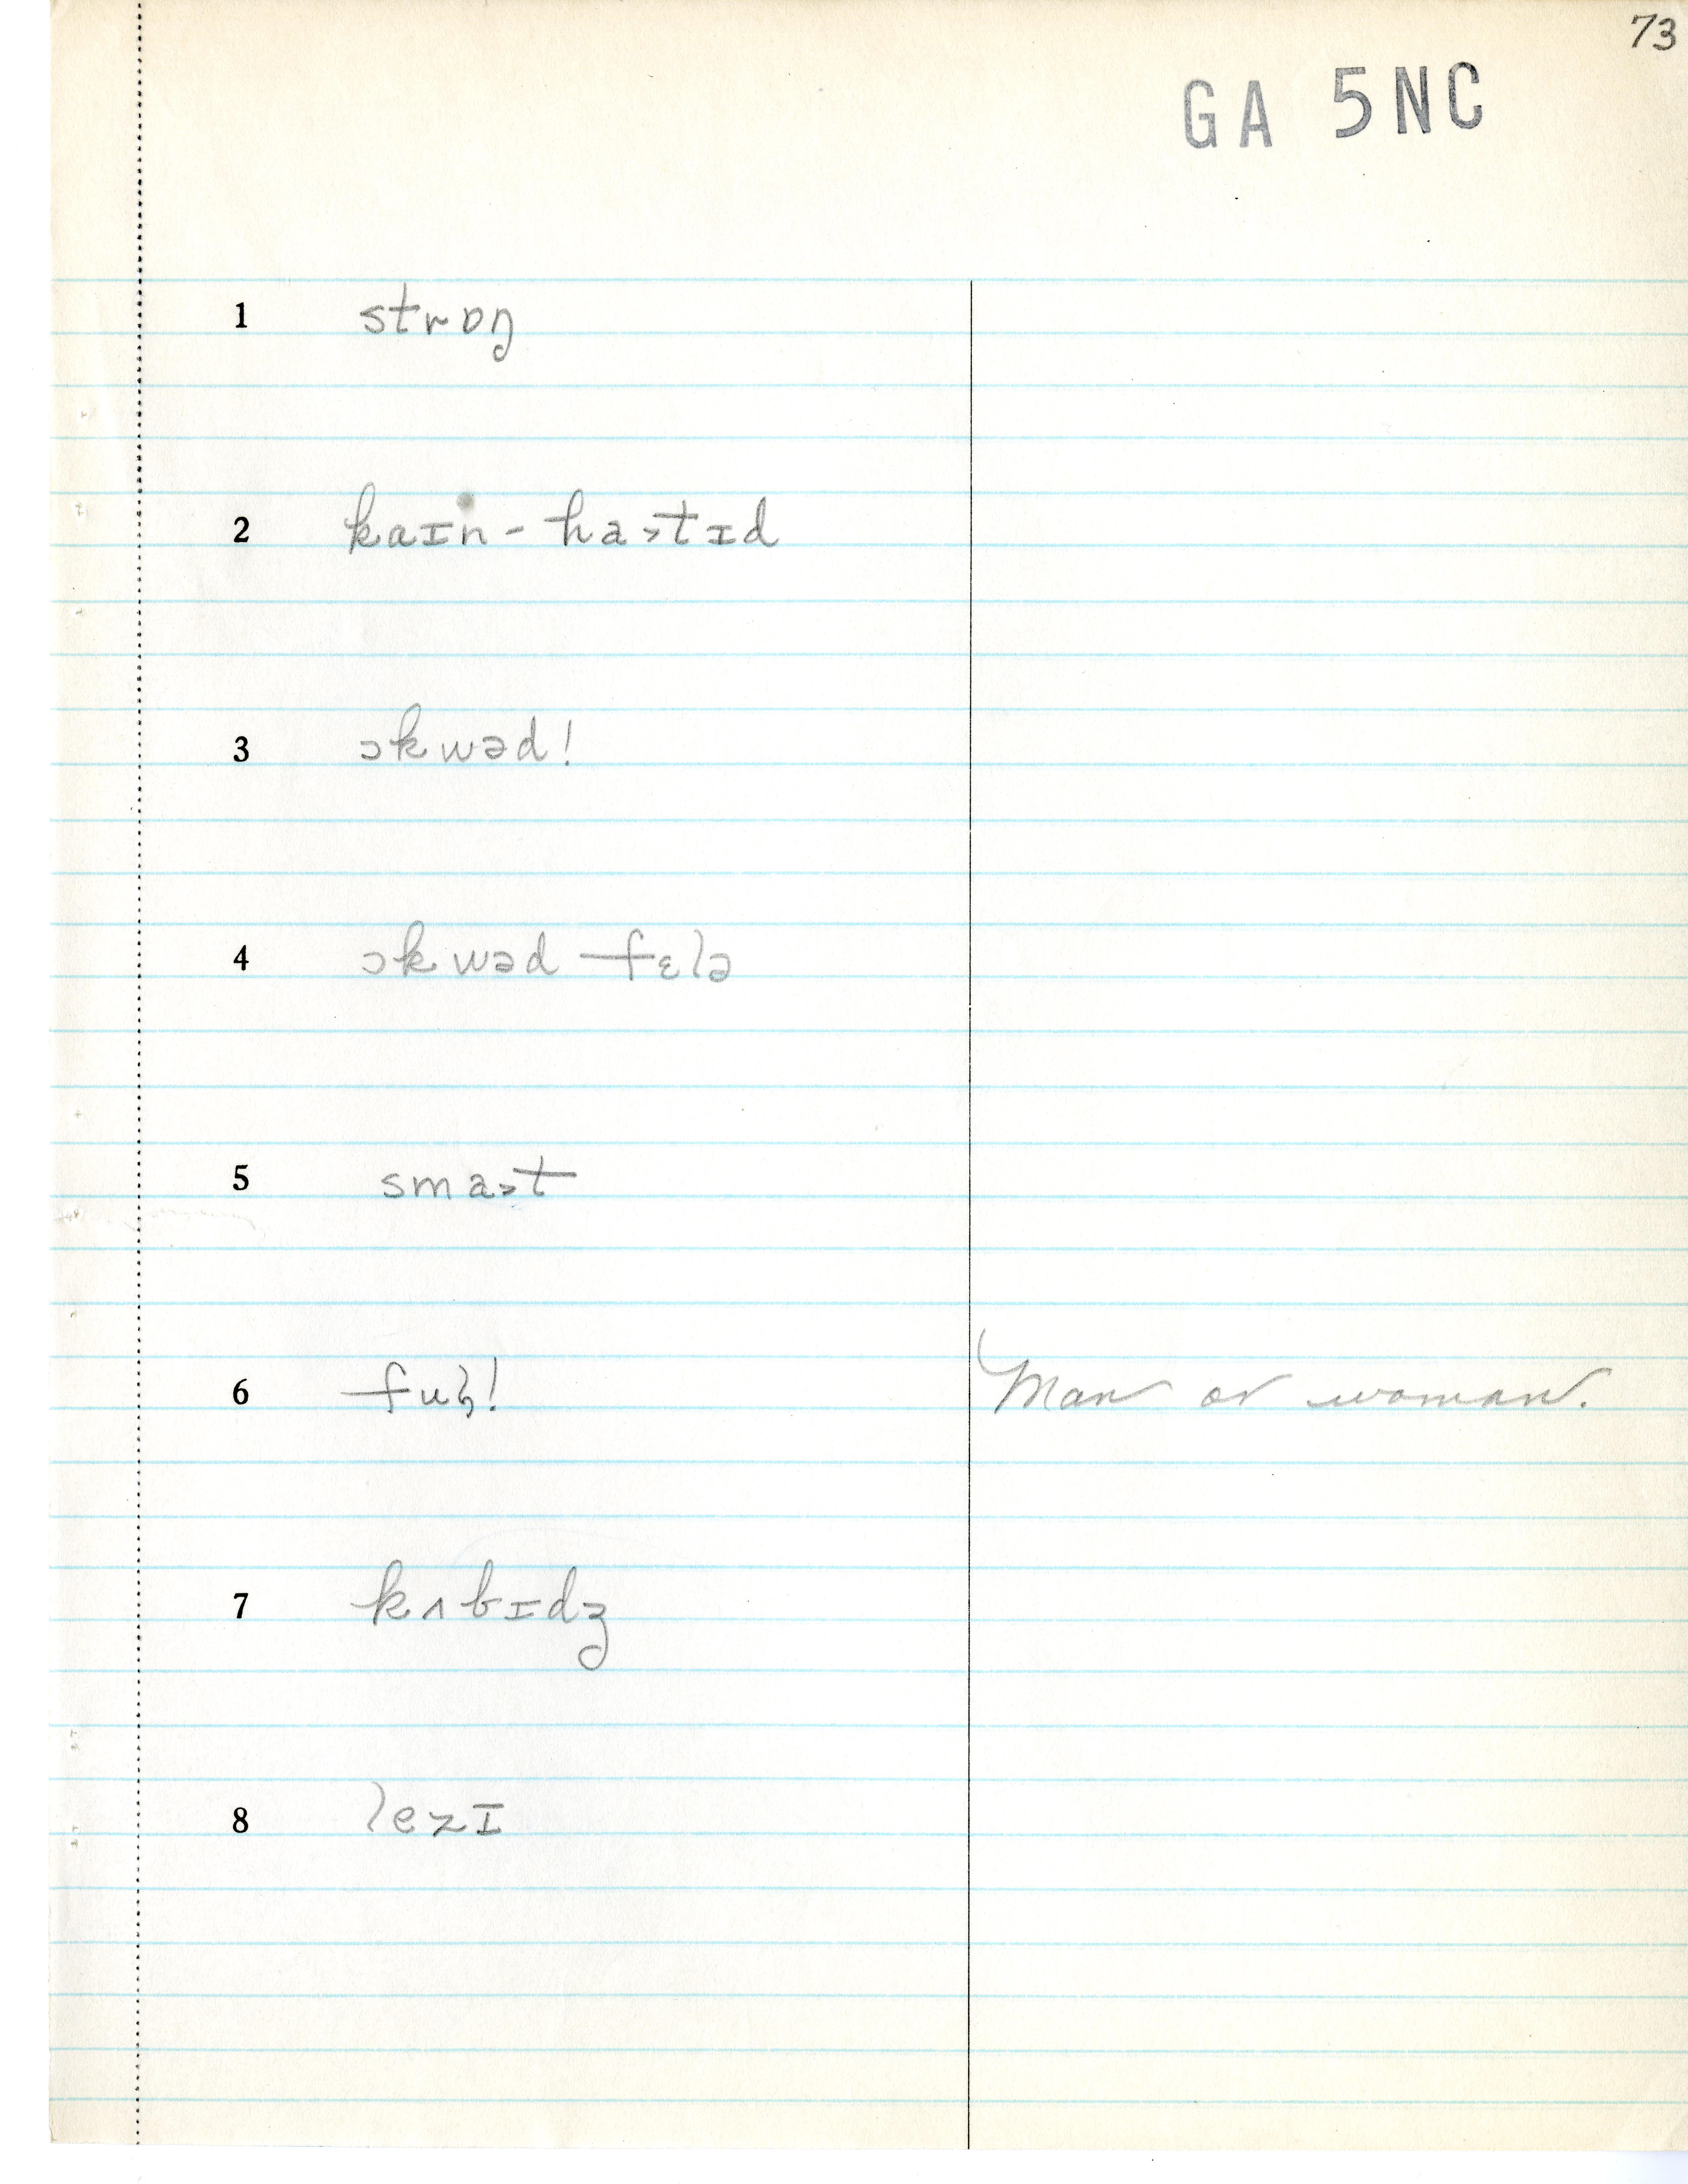 73
GA 5NC
1 strɒŋ
2 kaɪn-ha˃tɪd
3 ɔkwəd!
4 ɔkwəd fɛlə
5 sma˃t
6 Man or woman.
7 kʌbɪdʒ
8 lezɪ